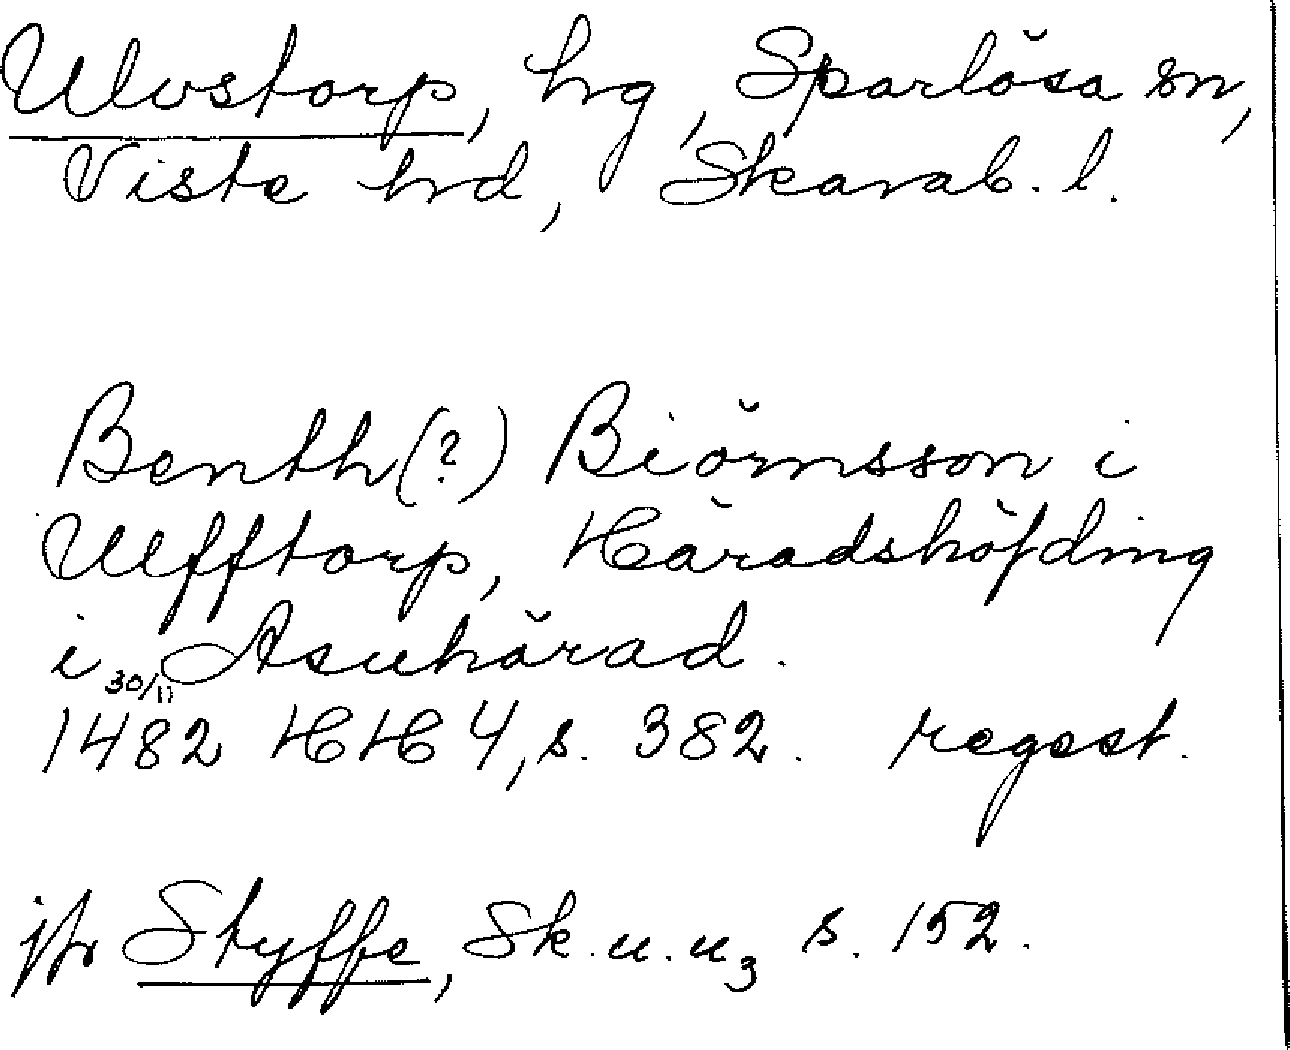 Ulvstorp, hg, Sparlösa sn,
Viste hrd, Skarab. l.
Benth(?) Biörnsson i
Ulfftorp, Häradshöfding
i Asuhärad.
30/11
1482 HH 4, s. 382. regest.
jfr Styffe, Sk. u. u3 s. 152.